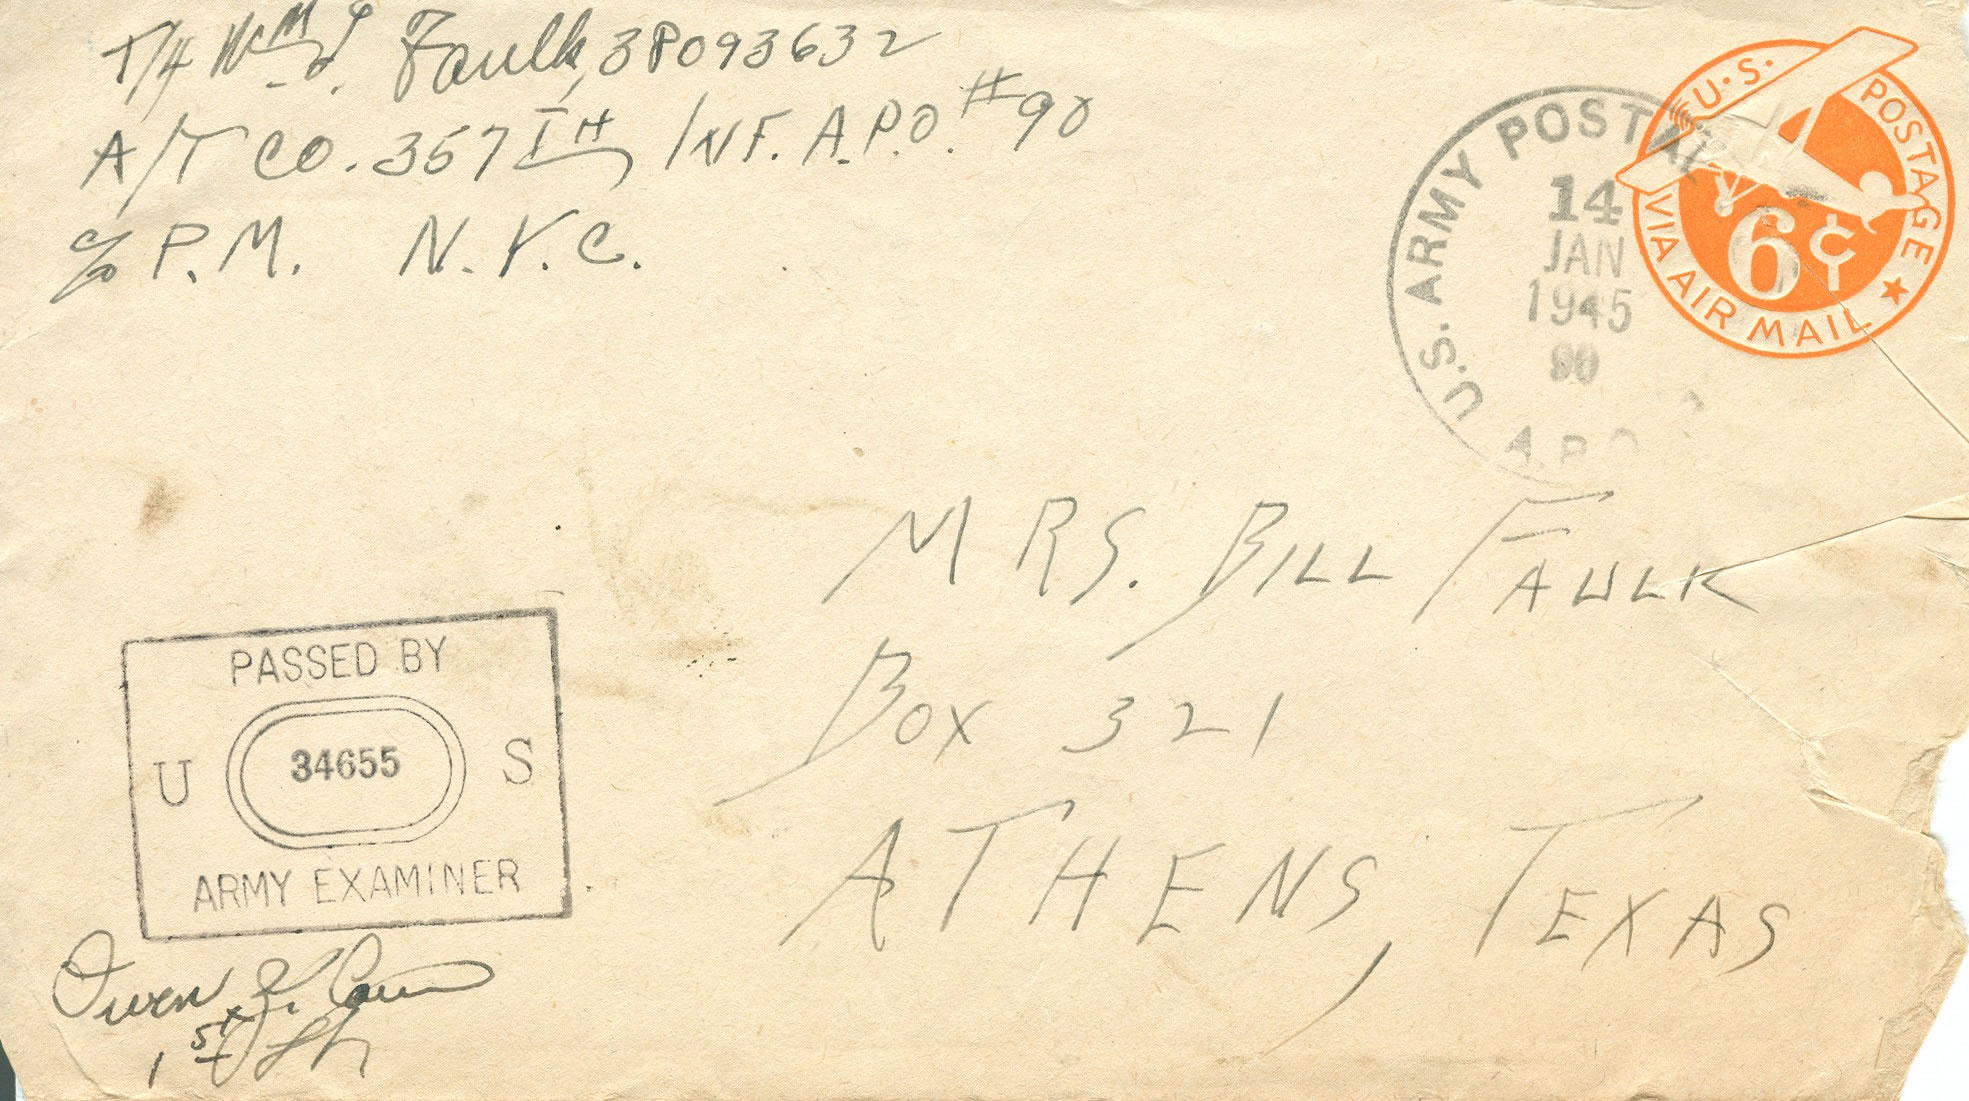 T/4 Wm L. Faulk, 38093632
A/T CO. 357TH INF. A.P.O. #90
c/o P.M. N.Y.C.
U.S. ARMY POSTAL
14
JAN
1945
90
A.P.O.
U.S. POSTAGE
6¢
VIA AIR MAIL
MRS. BILL FAULK
BOX 321
ATHENS, TEXAS
PASSED BY
U 34655 S
ARMY EXAMINER
Owen
1st Lt